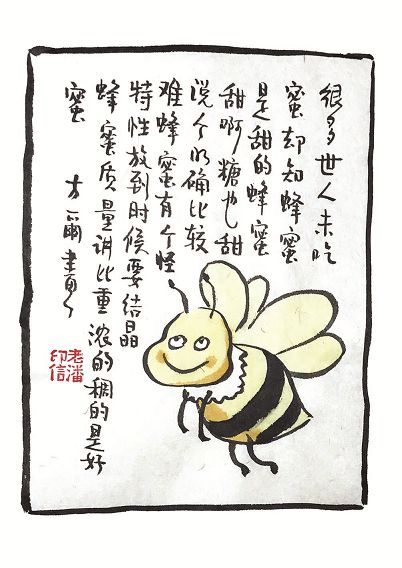 很多世人未吃
蜜却知蜂蜜
是甜的蜂蜜
甜啊糖也甜
说个明确比较
难蜂蜜有个怪
特性放到时候要结晶
蜂蜜质量讲比重浓的稠的是好
蜜 方爾
老潘
印信